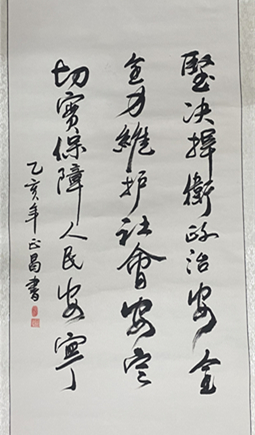 堅决捍衛政治安全
全力維护社會安定
切實保障人民安寧
乙亥年正昌書